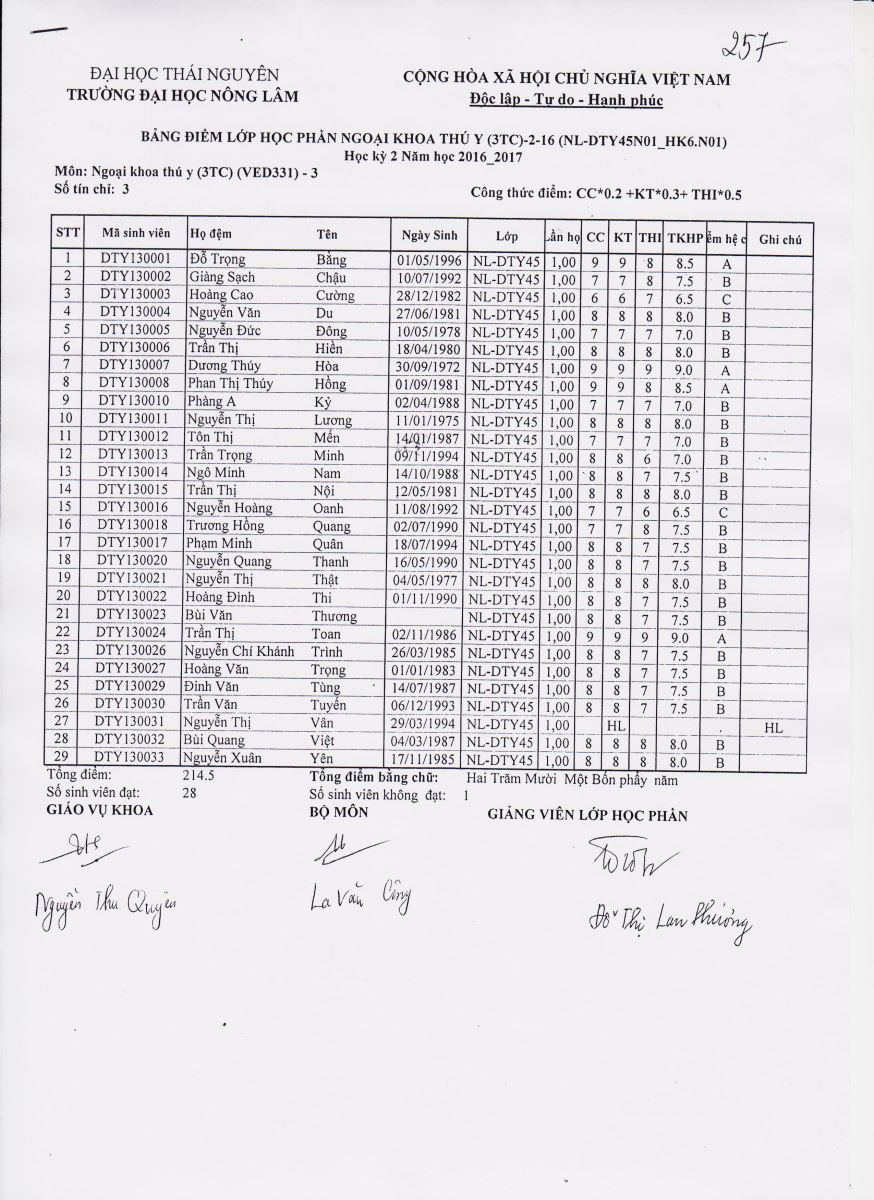 257
ĐẠI HỌC THÁI NGUYÊN
TRƯỜNG ĐẠI HỌC NÔNG LÂM
CỘNG HÒA XÃ HỘI CHỦ NGHĨA VIỆT NAM
Độc lập - Tự do - Hanh phúc
BẢNG ĐIỂM LỚP HỌC PHẦN NGOẠI KHOA THÚ Y (3TC)-2-16 (NL-DTY45N01_HK6.N01)
Học kỳ 2 Năm học 2016_2017
Môn: Ngoại khoa thú y (3TC) (VED331) - 3
Số tín chỉ: 3
Công thức điểm: CC*0.2 +KT*0.3+ THI*0.5
STT Mã sinh viên Họ đệm Tên Ngày Sinh Lớp Lần họ CC KT THI TKHP ểm hệ c Ghi chú
1 DTY130001 Đỗ Trọng Bằng 01/05/1996 NL-DTY45 1,00 9 9 8 8.5 A
2 DTY130002 Giàng Sạch Chậu 10/07/1992 NL-DTY45 1,00 7 7 8 7.5 B
3 DTY130003 Hoàng Cao Cường 28/12/1982 NL-DTY45 1,00 6 6 7 6.5 C
4 DTY130004 Nguyễn Văn Du 27/06/1981 NL-DTY45 1,00 8 8 8 8.0 B
5 DTY130005 Nguyễn Đức Đông 10/05/1978 NL-DTY45 1,00 7 7 7 7.0 B
6 DTY130006 Trần Thị Hiền 18/04/1980 NL-DTY45 1,00 8 8 8 8.0 B
7 DTY130007 Dương Thúy Hòa 30/09/1972 NL-DTY45 1,00 9 9 9 9.0 A
8 DTY130008 Phan Thị Thúy Hồng 01/09/1981 NL-DTY45 1,00 9 9 8 8.5 A
9 DTY130010 Phàng A Ký 02/04/1988 NL-DTY45 1,00 7 7 7 7.0 B
10 DTY130011 Nguyễn Thị Lương 11/01/1975 NL-DTY45 1,00 8 8 8 8.0 B
11 DTY130012 Tôn Thị Mến 14/01/1987 NL-DTY45 1,00 7 7 7 7.0 B
12 DTY130013 Trần Trọng Minh 09/11/1994 NL-DTY45 1,00 8 8 6 7.0 B
13 DTY130014 Ngô Minh Nam 14/10/1988 NL-DTY45 1,00 8 8 7 7.5 B
14 DTY130015 Trần Thị Nội 12/05/1981 NL-DTY45 1,00 8 8 8 8.0 B
15 DTY130016 Nguyễn Hoàng Oanh 11/08/1992 NL-DTY45 1,00 7 7 6 6.5 C
16 DTY130018 Trương Hồng Quang 02/07/1990 NL-DTY45 1,00 7 7 8 7.5 B
17 DTY130017 Phạm Minh Quân 18/07/1994 NL-DTY45 1,00 8 8 7 7.5 B
18 DTY130020 Nguyễn Quang Thanh 16/05/1990 NL-DTY45 1,00 8 8 7 7.5 B
19 DTY130021 Nguyễn Thị Thật 04/05/1977 NL-DTY45 1,00 8 8 8 8.0 B
20 DTY130022 Hoàng Đình Thi 01/11/1990 NL-DTY45 1,00 8 8 7 7.5 B
21 DTY130023 Bùi Văn Thương NL-DTY45 1,00 8 8 7 7.5 B
22 DTY130024 Trần Thị Toan 02/11/1986 NL-DTY45 1,00 9 9 9 9.0 A
23 DTY130026 Nguyễn Chí Khánh Trình 26/03/1985 NL-DTY45 1,00 8 8 7 7.5 B
24 DTY130027 Hoàng Văn Trọng 01/01/1983 NL-DTY45 1,00 8 8 7 7.5 B
25 DTY130029 Đinh Văn Tùng 14/07/1987 NL-DTY45 1,00 8 8 7 7.5 B
26 DTY130030 Trần Văn Tuyến 06/12/1993 NL-DTY45 1,00 8 8 7 7.5 B
27 DTY130031 Nguyễn Thị Vân 29/03/1994 NL-DTY45 1,00 HL HL
28 DTY130032 Bùi Quang Việt 04/03/1987 NL-DTY45 1,00 8 8 8 8.0 B
29 DTY130033 Nguyễn Xuân Yên 17/11/1985 NL-DTY45 1,00 8 8 8 8.0 B
Tổng điểm: 214.5 Tổng điểm bằng chữ: Hai Trăm Mười Một Bốn phẩy năm
Số sinh viên đạt: 28 Số sinh viên không đạt: 1
GIÁO VỤ KHOA BỘ MÔN GIẢNG VIÊN LỚP HỌC PHẦN
Nguyễn Thu Quyên La Văn Công Đỗ Thị Lan Phương